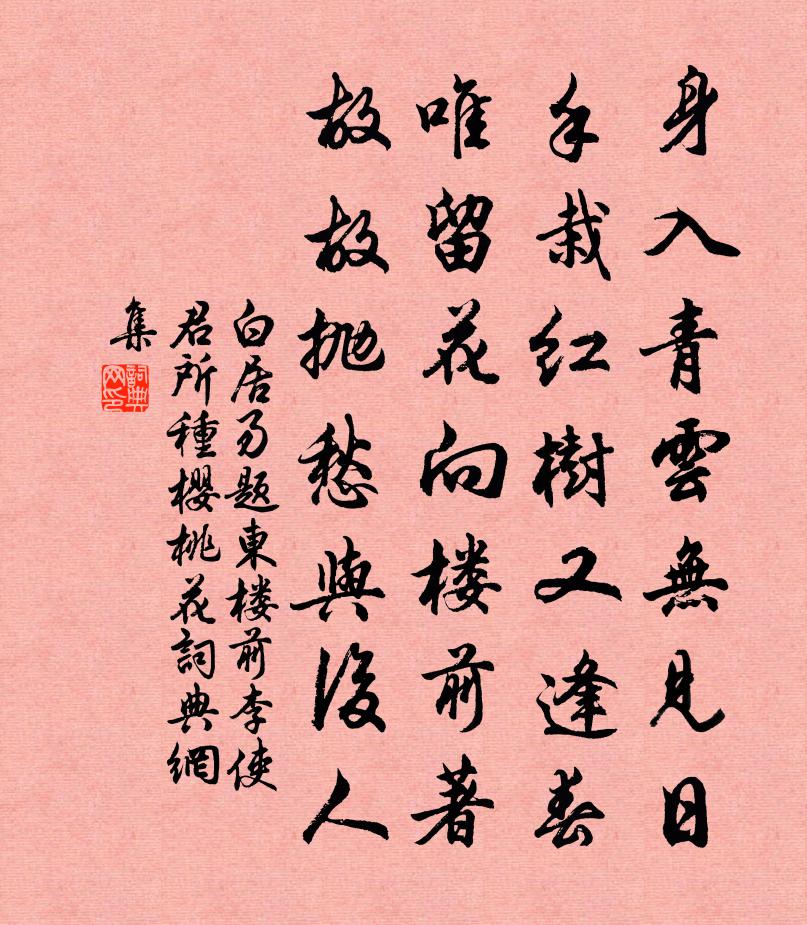 身入青雲無見日
手栽紅樹又逢春
唯留花向楼前著
故故抛愁與後人
白居易题東楼前李使
君所種櫻桃花詞典網
集
詞典網印